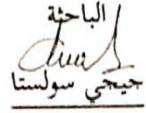 الباحثة
حيحي سولستا